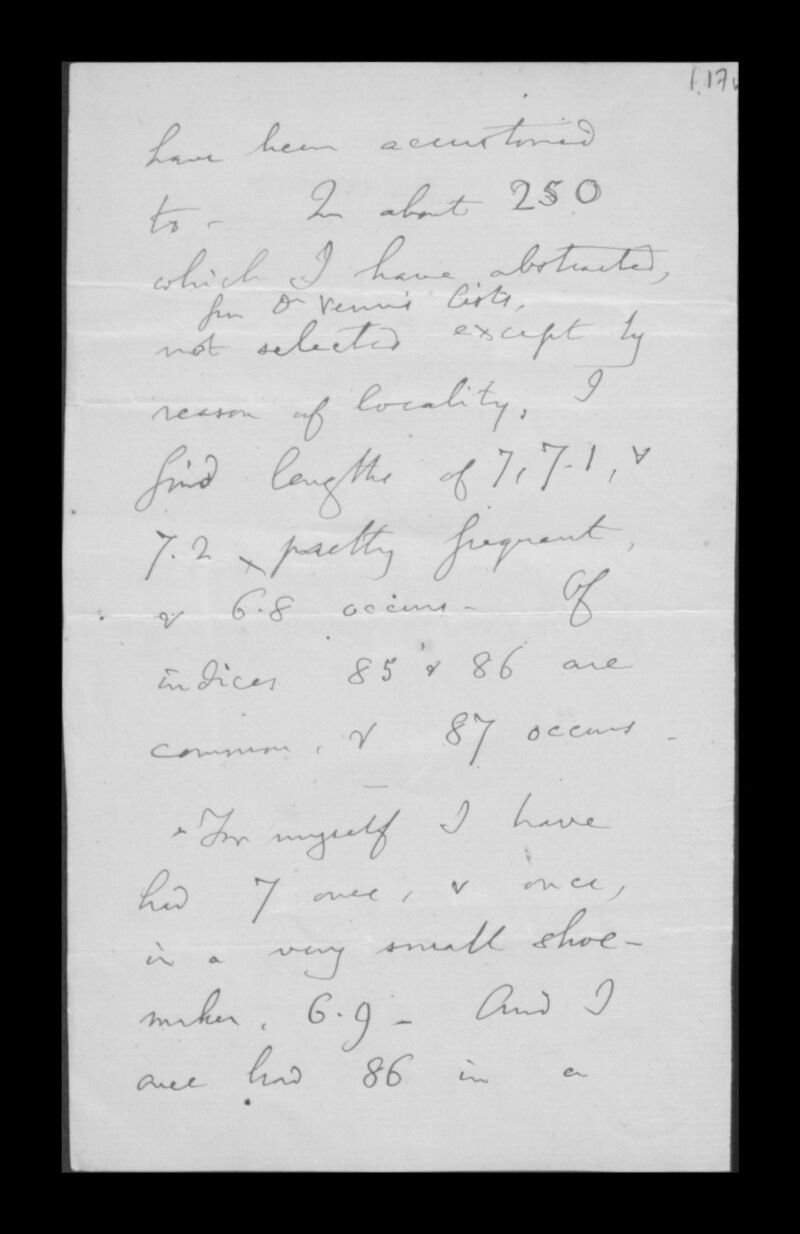 f.17v
have been accustomed
to - In about 250
which I have abstracted,
from Dr Venn's lists,
not selected except by
reason of locality, I
find lengths of 7, 7.1, &
7.2 pretty frequent,
& 6.8 occurs - Of
indices 85 & 86 are
common, & 87 occurs -
For myself I have
had 7 once, & once,
in a very small shoe-
maker, 6.9 - And I
once had 86 in a